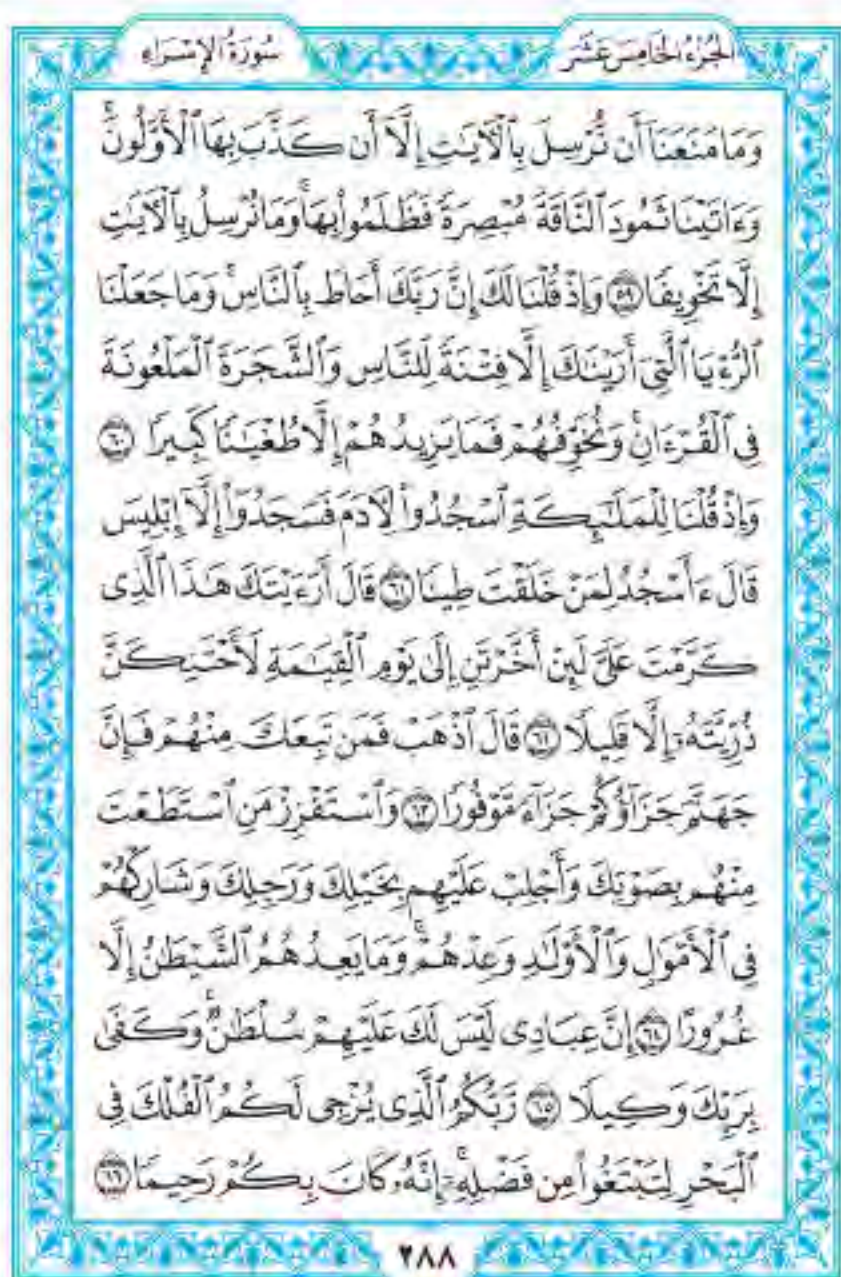 سُورَةُ الإِسْرَاءِ
الجُزْءُ الخَامِسَ عَشَرَ
وَمَا مَنَعَنَآ أَن نُّرْسِلَ بِٱلْأٓيَـٰتِ إِلَّآ أَن كَذَّبَ بِهَا ٱلْأَوَّلُونَۚ
وَءَاتَيْنَا ثَمُودَ ٱلنَّاقَةَ مُبْصِرَةً فَظَلَمُوا۟ بِهَاۚ وَمَا نُرْسِلُ بِٱلْأٓيَـٰتِ
إِلَّا تَخْوِيفًا ٥٩ وَإِذْ قُلْنَا لَكَ إِنَّ رَبَّكَ أَحَاطَ بِٱلنَّاسِۚ وَمَا جَعَلْنَا
ٱلرُّءْيَا ٱلَّتِىٓ أَرَيْنَـٰكَ إِلَّا فِتْنَةً لِّلنَّاسِ وَٱلشَّجَرَةَ ٱلْمَلْعُونَةَ
فِى ٱلْقُرْءَانِۚ وَنُخَوِّفُهُمْ فَمَا يَزِيدُهُمْ إِلَّا طُغْيَـٰنًا كَبِيرًا ٦٠
وَإِذْ قُلْنَا لِلْمَلَـٰٓئِكَةِ ٱسْجُدُوا۟ لِأٓدَمَ فَسَجَدُوٓا۟ إِلَّآ إِبْلِيسَ
قَالَ ءَأَسْجُدُ لِمَنْ خَلَقْتَ طِينًا ٦١ قَالَ أَرَءَيْتَكَ هَـٰذَا ٱلَّذِى
كَرَّمْتَ عَلَىَّ لَئِنْ أَخَّرْتَنِ إِلَىٰ يَوْمِ ٱلْقِيَـٰمَةِ لَأَحْتَنِكَنَّ
ذُرِّيَّتَهُۥٓ إِلَّا قَلِيلًا ٦٢ قَالَ ٱذْهَبْ فَمَن تَبِعَكَ مِنْهُمْ فَإِنَّ
جَهَنَّمَ جَزَآؤُكُمْ جَزَآءً مَّوْفُورًا ٦٣ وَٱسْتَفْزِزْ مَنِ ٱسْتَطَعْتَ
مِنْهُم بِصَوْتِكَ وَأَجْلِبْ عَلَيْهِم بِخَيْلِكَ وَرَجِلِكَ وَشَارِكْهُمْ
فِى ٱلْأَمْوَٰلِ وَٱلْأَوْلَـٰدِ وَعِدْهُمْۚ وَمَا يَعِدُهُمُ ٱلشَّيْطَـٰنُ إِلَّا
غُرُورًا ٦٤ إِنَّ عِبَادِى لَيْسَ لَكَ عَلَيْهِمْ سُلْطَـٰنٌۚ وَكَفَىٰ
بِرَبِّكَ وَكِيلًا ٦٥ رَّبُّكُمُ ٱلَّذِى يُزْجِى لَكُمُ ٱلْفُلْكَ فِى
ٱلْبَحْرِ لِتَبْتَغُوا۟ مِن فَضْلِهِۦٓۚ إِنَّهُۥ كَانَ بِكُمْ رَحِيمًا ٦٦
٢٨٨